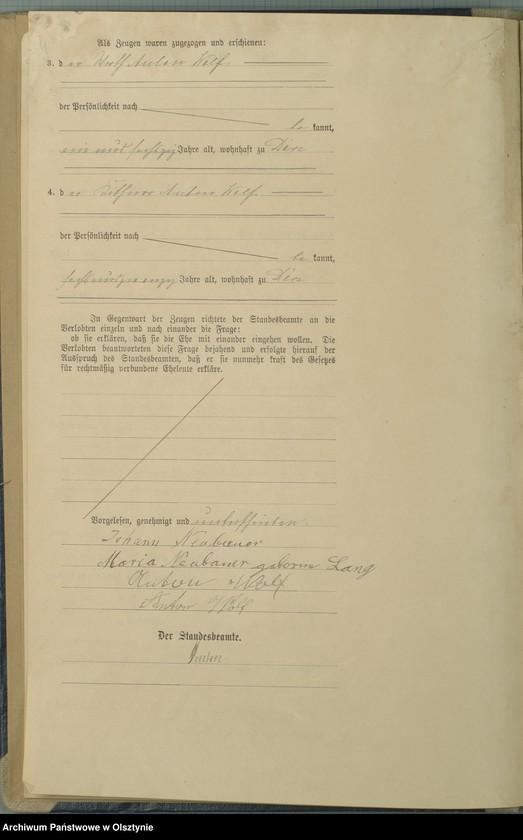 Als Zeugen waren zugezogen und erschienen:
3. der Anton Wolf
der Persönlichkeit nach
bekannt,
ein und sechzig Jahre alt, wohnhaft zu
4. der Anton Wolf
der Persönlichkeit nach
bekannt,
sechsundzwanzig Jahre alt, wohnhaft zu
In Gegenwart der Zeugen richtete der Standesbeamte an die
Verlobten einzeln und nach einander die Frage:
ob sie erklären, daß sie die Ehe mit einander eingehen wollen. Die
Verlobten beantworteten diese Frage bejahend und erfolgte hierauf der
Ausspruch des Standesbeamten, daß er sie nunmehr kraft des Gesetzes
für rechtmäßig verbundene Eheleute erkläre.
Vorgelesen, genehmigt und unterschrieben.
Johann Neubauer
Maria Neubauer geborne Lang
Anton Wolf
Anton Wolf
Der Standesbeamte.
Archiwum Państwowe w Olsztynie